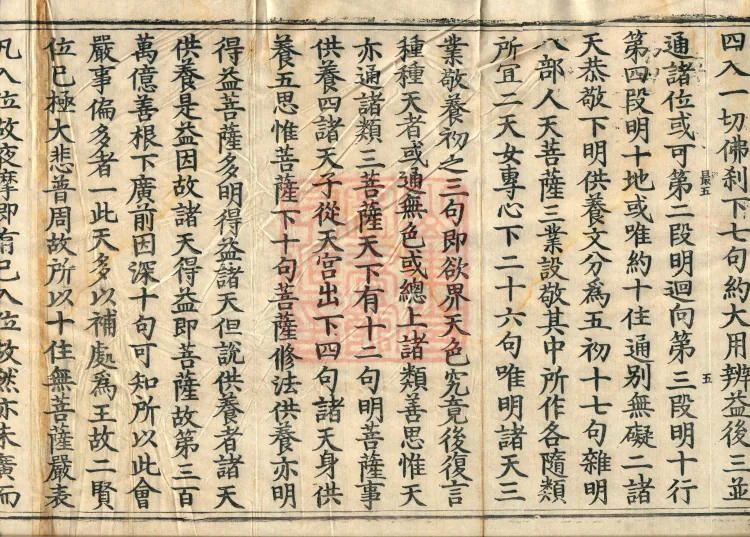 四入一切佛刹下七句約大用辨益後三並
通諸位或可第二段明迴向第三段明十行
第四段明十地或唯約十住通别無礙二諸
天恭敬下明供養文分爲五初十七句雜明
八部人天菩薩三業設敬其中所作各隨類
所宜二天女專心下二十六句唯明諸天三
業敬養初之三句即欲界天色究竟後復言
種種天者或通無色或總上諸類善思惟天
亦通諸類三菩薩天下有十二句明菩薩事
供養四諸天子從天宮出下四句諸天身供
養五思惟菩薩下十句菩薩修法供養亦明
得益菩薩多明得益諸天但説供養者諸天
供養是益因故諸天得益即菩薩故第三百
萬億善根下廣前因深十句可知所以此會
嚴事偏多者一此天多以補處爲王故二賢
位已極大悲普周故所以十住無菩薩嚴表
凡入位故夜摩即有已入位故然亦未廣而